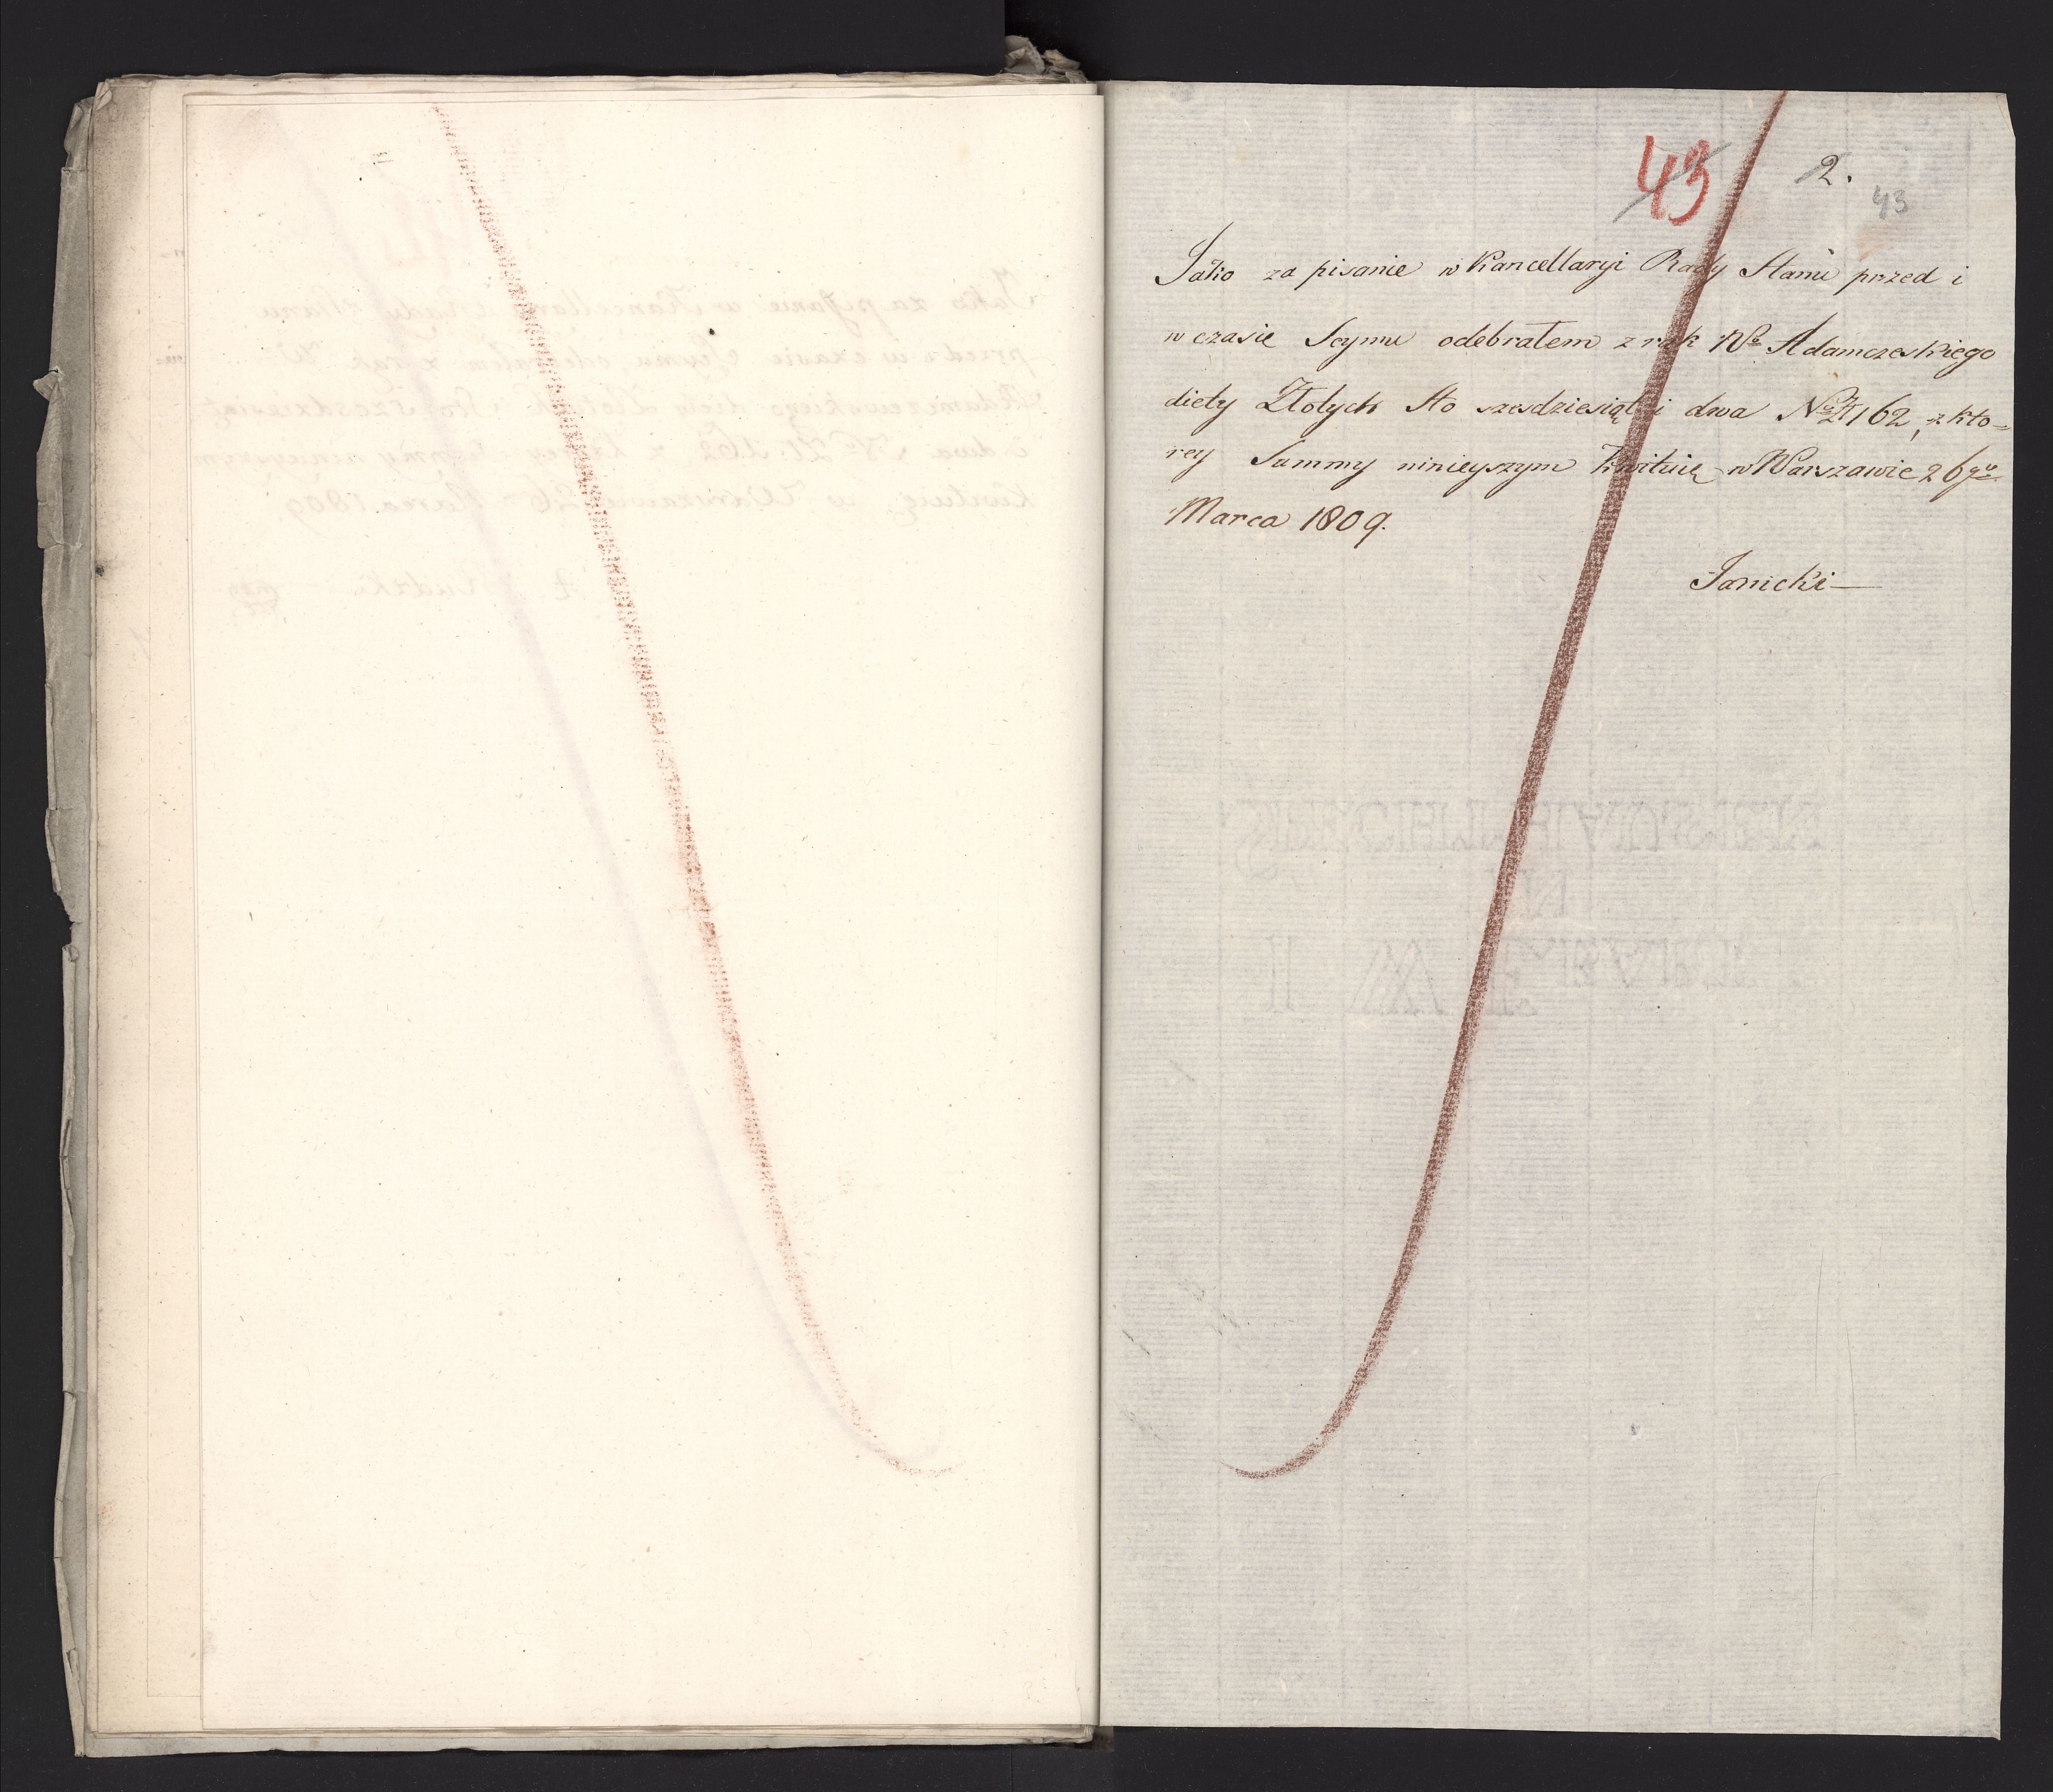 43
2.
43
Jako za pisanie w Kancellaryi Rady Stanu przed i
w czasie Seymu odebrałem z rąk Wo Adamczeskiego
diety Złotych sto szesdziesiąt i dwa No Zł 162, z kto=
rey Summy ninieyszym kwituię w Warszawie 26go
Marca 1809.
Janicki